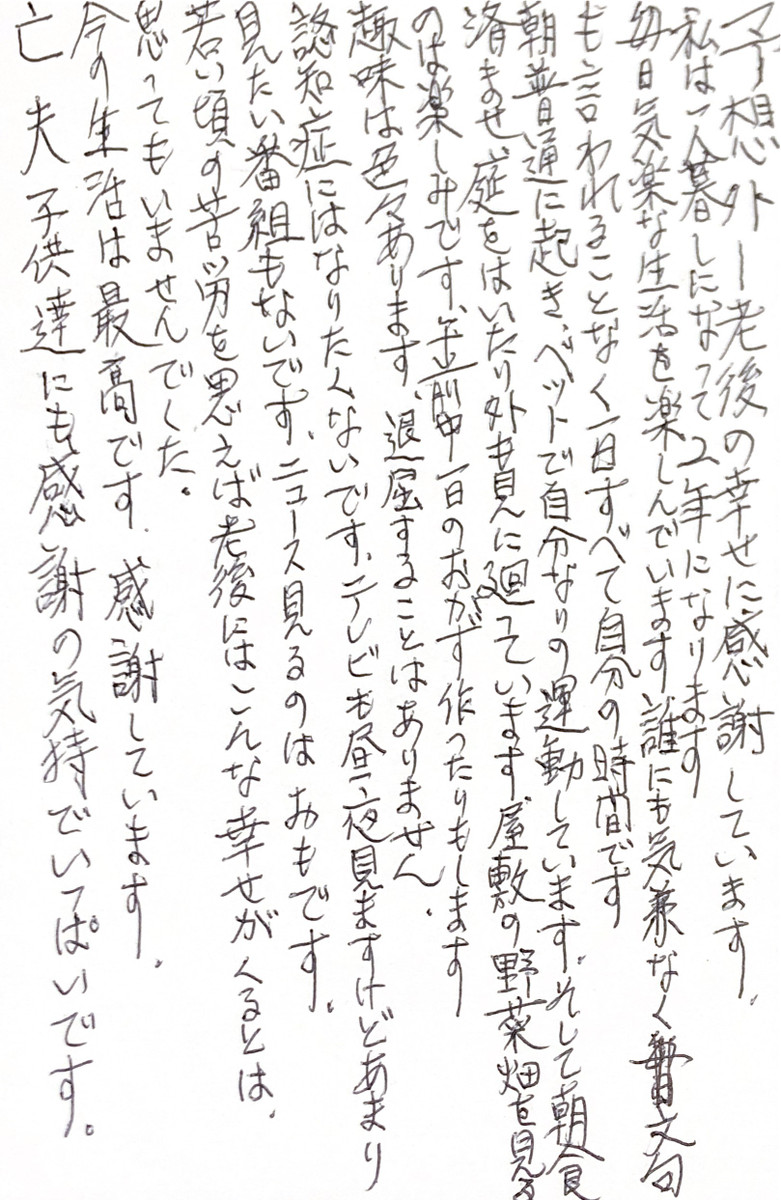 予想外ー老後の幸せに感謝しています。
私は一人暮しになって2年になります
毎日気楽な生活を楽しんでいます誰にも気兼なく文句
も言われることなく一日すべて自分の時間です
朝普通に起き、ベットで自分なりの運動しています。そして朝食
済ませ庭をはいたり外も見に廻っています、屋敷の野菜畑を見る
のは楽しみです、午前中一日のおかず作ったりもします
趣味は色々あります、退屈することはありません、
認知症にはなりたくないです、テレビも昼夜見ますけどあまり
見たい番組もないです、ニュース見るのはおもです。
若い頃の苦労を思えば老後にはこんな幸せがくるとは、
思ってもいませんでくた。
今の生活は最高です、感謝しています。
亡夫子供達にも感謝の気持でいっぱいです。